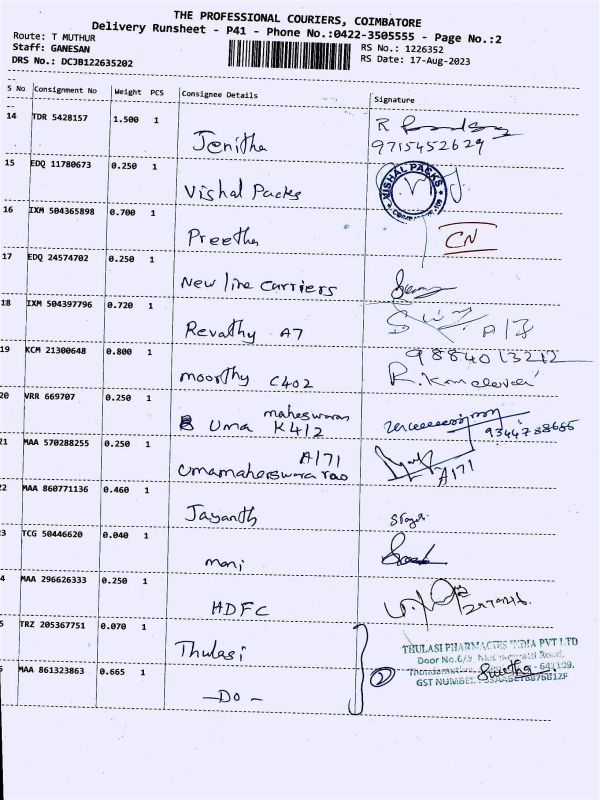 THE PROFESSIONAL COURIERS, COIMBATORE
Delivery Runsheet - P41 - Phone No.:0422-3505555 - Page No.:2
Route: T MUTHUR
Staff: GANESAN RS No.: 1226352
DRS No.: DCJB122635202 RS Date: 17-Aug-2023
S No Consignment No Weight PCS Consignee Details Signature
14 TDR 5428157 1.500 1 Jenitha R
9715452629
15 EDQ 11780673 0.250 1 Vishal Packs VISHAL PACKS
16 IXM 504365898 0.700 1 Preetha CN
17 EDQ 24574702 0.250 1 New line carriers
18 IXM 504397796 0.720 1 Revathy A7
19 KCM 21300648 0.800 1 moorthy C402 9884013212
20 VRR 669707 0.250 1 Uma maheswaran K412 9344788685
21 MAA 570288255 0.250 1 Umamaheswara rao A171 A171
2 MAA 860771136 0.460 1 Jayanth
3 TCG 50446620 0.040 1 mani
4 MAA 296626333 0.250 1 HDFC
5 TRZ 205367751 0.070 1 Thulasi THULASI PHARMACIES INDIA PVT LTD
Door No.6/3, Road,
- 641109.
MAA 861323863 0.665 1 -DO- 2 GST NUMBER